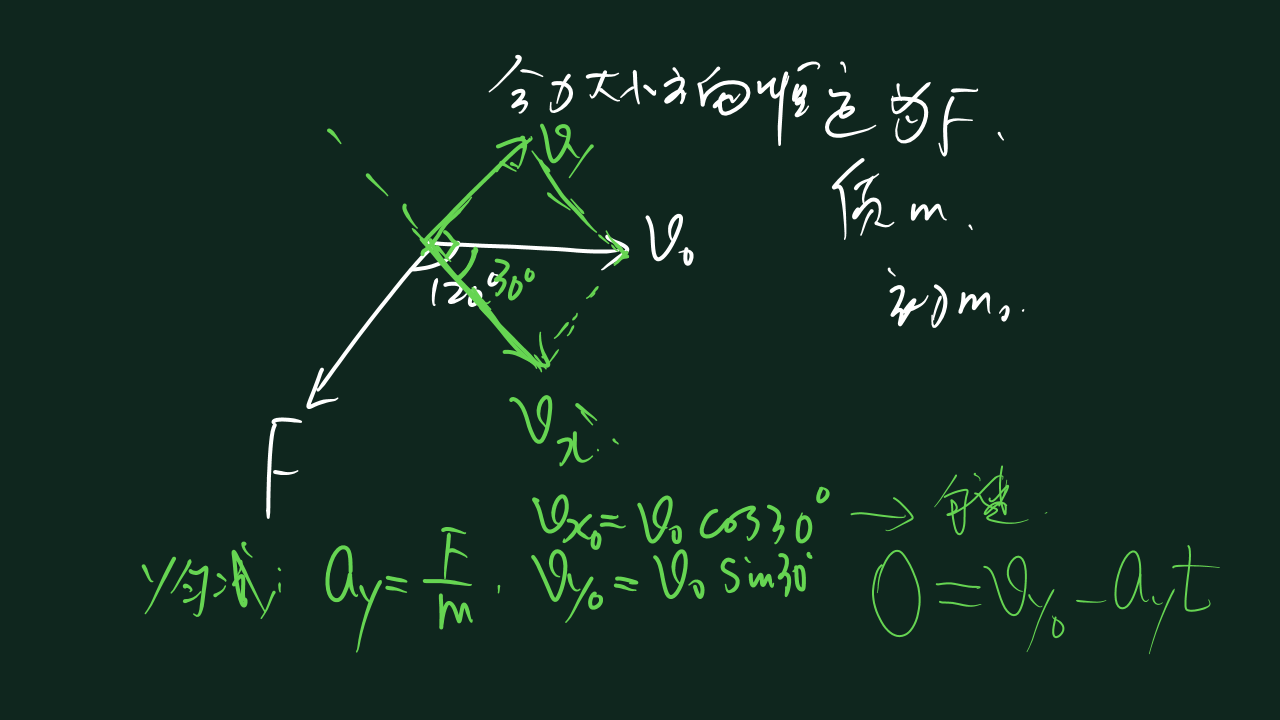 合力大小方向恒定为F.
v_y
质m.
v₀
120°
30°
v_x
F
v_{x₀}=v₀cos30°→匀速.
y匀减: a_y=\frac{F}{m}. v_{y₀}=v₀sin30° 0=v_{y₀}-a_yt